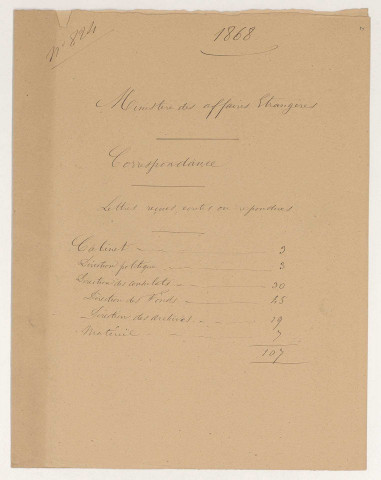 N° 894
1868
Ministère des affaires Etrangères
Correspondance
Lettres reçues, écrites ou répondues
Cabinet — 3
Direction politique — 3
Direction des consulats — 30
Direction des Fonds — 45
Direction des archives — 19
Matériel — 7
107